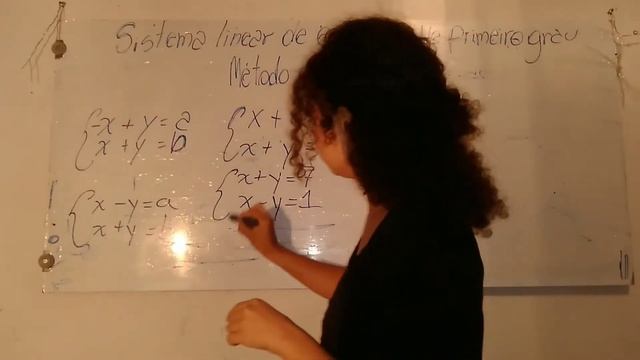 Sistema linear de primeiro grau
Método
-x + y = a
x + y = b
x +
x + y =
x + y = 7
x - y = 1
x - y = a
x + y =